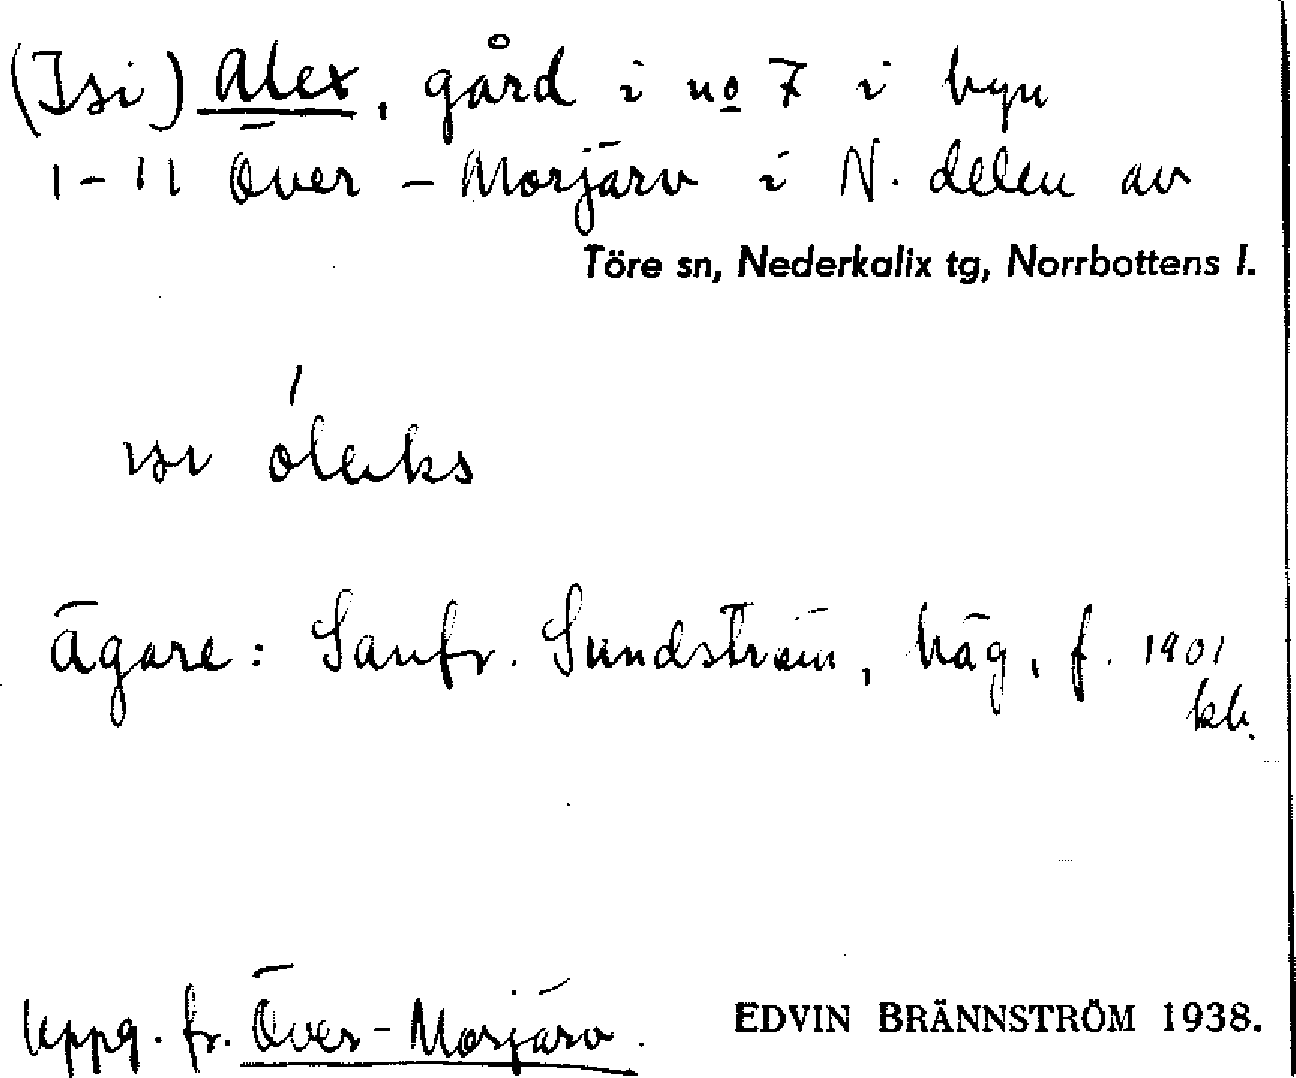 (Isi) Alex, gård i no 7 i byn
1-11 Över-Morjärv i N. delen av
Töre sn, Nederkalix tg, Norrbottens l.
ɪsɪ óleks
Ägare: Sanfr. Sundström, häg, f. 1901
kb.
Uppg. fr. Över-Morjärv.
EDVIN BRÄNNSTRÖM 1938.